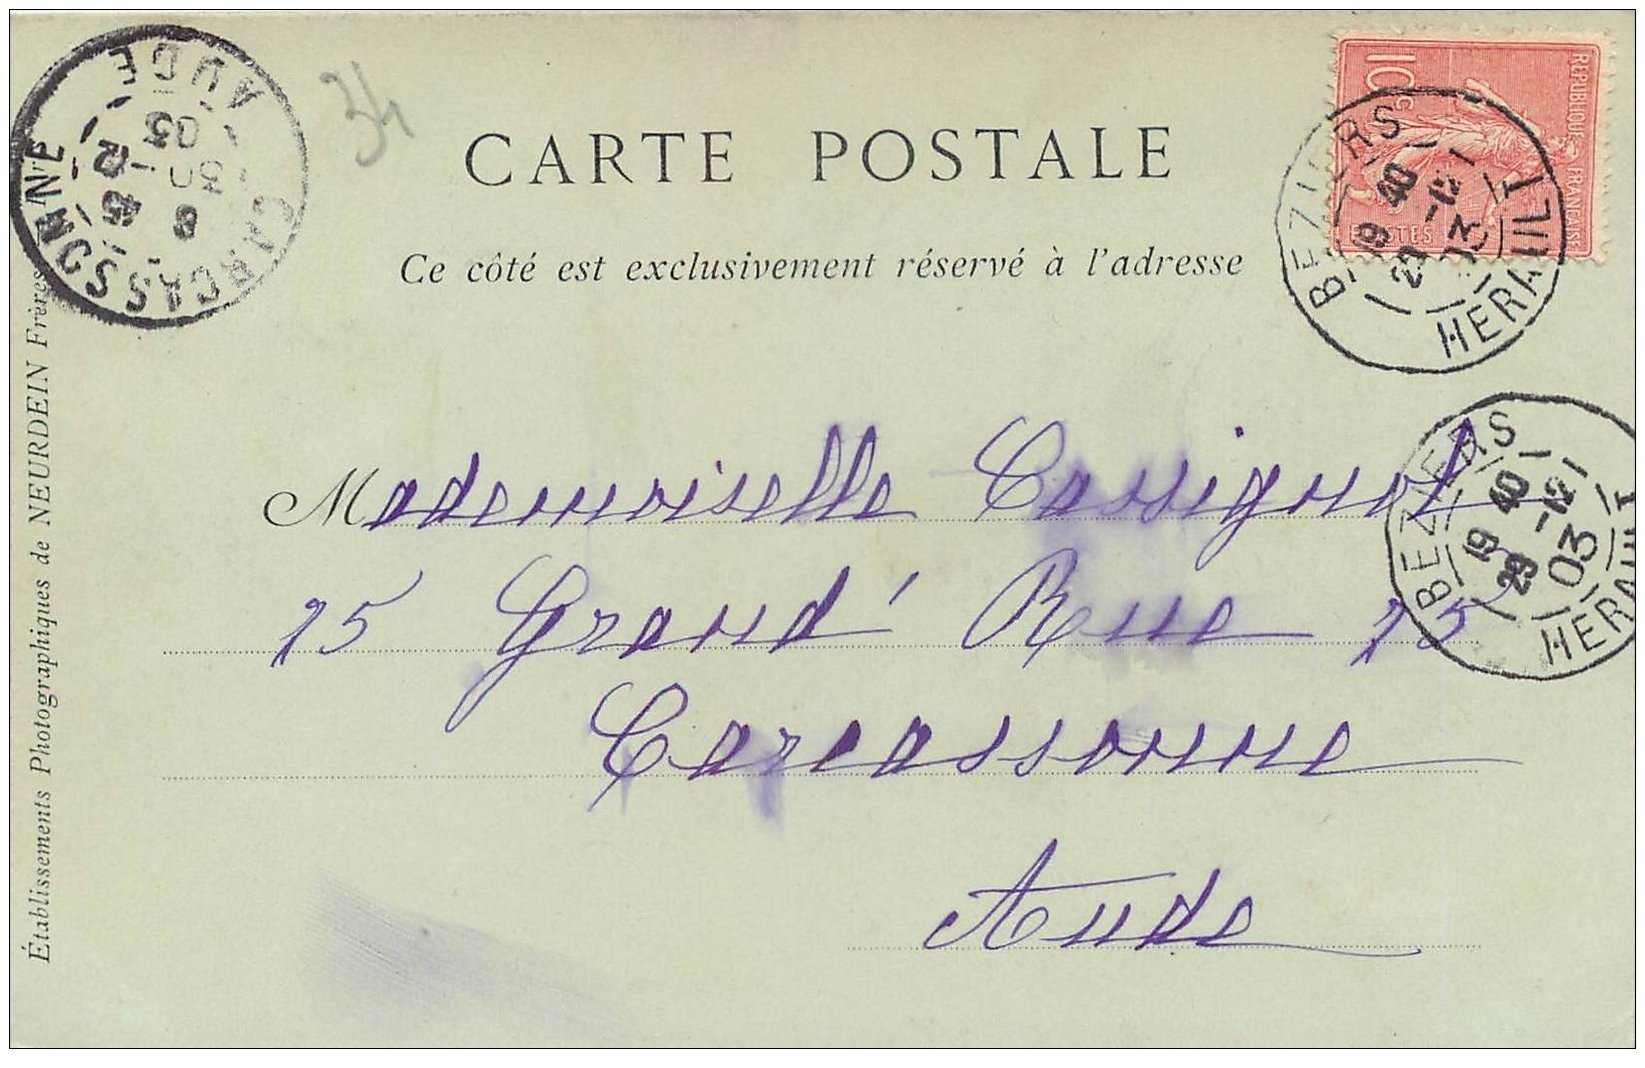 CARTE POSTALE
Ce côté est exclusivement réservé à l'adresse
Mademoiselle Cassignol
25 Grand' Rue 25
Carcassonne
Aude
Établissements Photographiques de NEURDEIN Frères
34
CARCASSONNE
AUDE
03
10c
REPUBLIQUE FRANÇAISE
POSTES
BEZIERS
19 40
29 -12
03
HERAULT
BEZIERS
19 40
29 -12
03
HERAULT